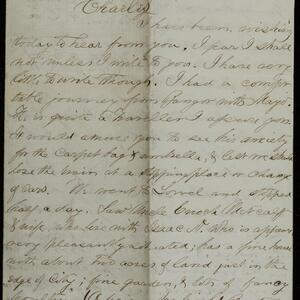 Charley
I have been wishing
today to hear from you. I fear I shall
not unless I write to you. I have very
little to write though. I had a comfor
table journey from Bangor with Mayo.
He is quite a traveller I assure you
It would amuse you to see his anxiety
for the Carpet bag & umbrella, & lest we should
lose the train at a stopping place or change
of cars. We went to Lowell and stopped
half a day. Saw Uncle Enoch Metcalf
& wife, who live with Isaac N. who is
very pleasantly situated; has a fine house
with about two acres of land just in the
edge of City; fine garden, & lots of fancy